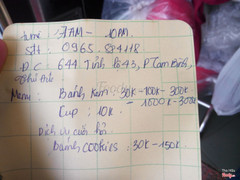 Time: 7AM - 10PM.
SĐT: 0965.884118
Đ.C: 644 Tỉnh lộ 43, P. Tam Bình,
Thủ Đức
Menu: Bánh kem: 30k - 100k - 300k
- 1000k - 300k
Cup: 10k
Dịch vụ cưới hỏi
Bánh cookies: 30k - 150k